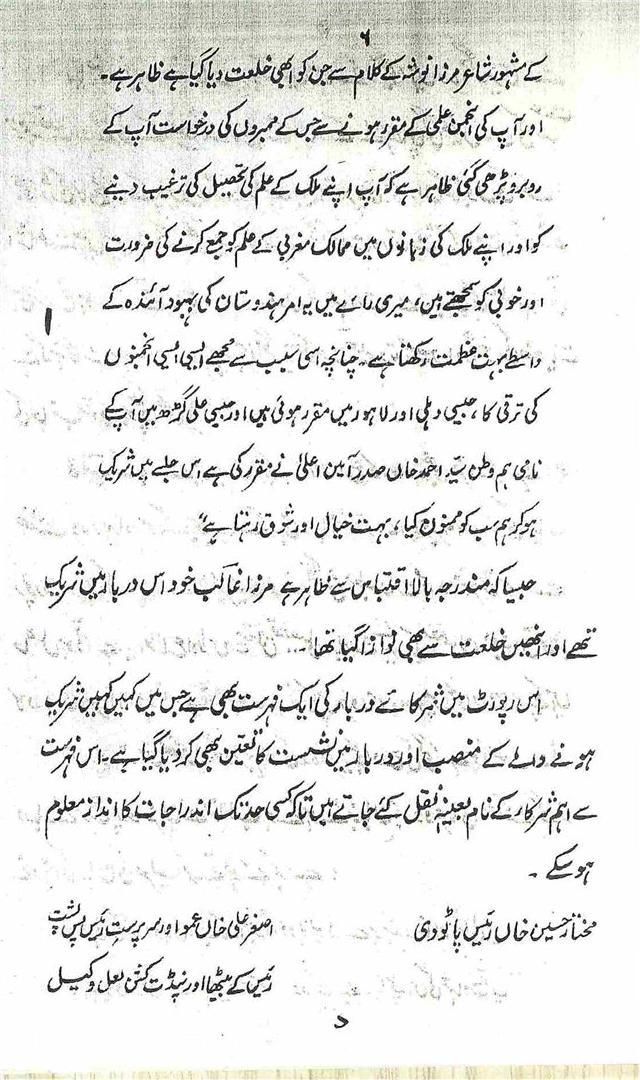 ۶
کے مشہور شاعر مرزا نوشہ کے کلام سے جن کو ابھی خلعت دیا گیا ہے ظاہر ہے۔
اور آپ کی انجمن علمی کے مقرر ہونے سے جس کے ممبروں کی درخواست آپ کے
روبرو پڑھی گئی ظاہر ہے کہ آپ اپنے ملک کے علم کی تحصیل کی ترغیب دینے
کو اور اپنے ملک کی زبانوں میں ممالک مغربی کے علم کو جمع کرنے کی ضرورت
اور خوبی کو سمجھتے ہیں، میری رائے میں یہ امر ہندوستان کی بہبود آئندہ کے
واسطے بہت عظمت رکھتا ہے۔ چنانچہ اسی سبب سے مجھے ایسی ایسی انجمنوں
کی ترقی کا، جیسی دہلی اور لاہور میں مقرر ہوئی ہیں اور جیسی علی گڑھ میں آپ کے
نامی ہم وطن سید احمد خاں صدر امین اعلیٰ نے مقرر کی ہے اس جلسے میں شریک
ہو کر ہم سب کو ممنون کیا، بہت خیال اور شوق رہتا ہے"
جیسا کہ مندرجہ بالا اقتباس سے ظاہر ہے مرزا غالب خود اس دربار میں شریک
تھے اور انھیں خلعت سے بھی نوازا گیا تھا۔
اس رپورٹ میں شرکائے دربار کی ایک فہرست بھی ہے جس میں کہیں کہیں شریک
ہونے والے کے منصب اور دربار میں نشست کا تعین بھی کر دیا گیا ہے۔ اس فہرست
سے اہم شرکاء کے نام بعینہٖ نقل کئے جاتے ہیں تاکہ کسی حد تک اندراجات کا انداز معلوم
ہو سکے۔
مختار حسین خاں رئیس پاٹودی اصغر علی خاں عمو اور سرپرست رئیس پس پشت
رئیس کے بیٹھا اور پنڈت کشن لعل وکیل